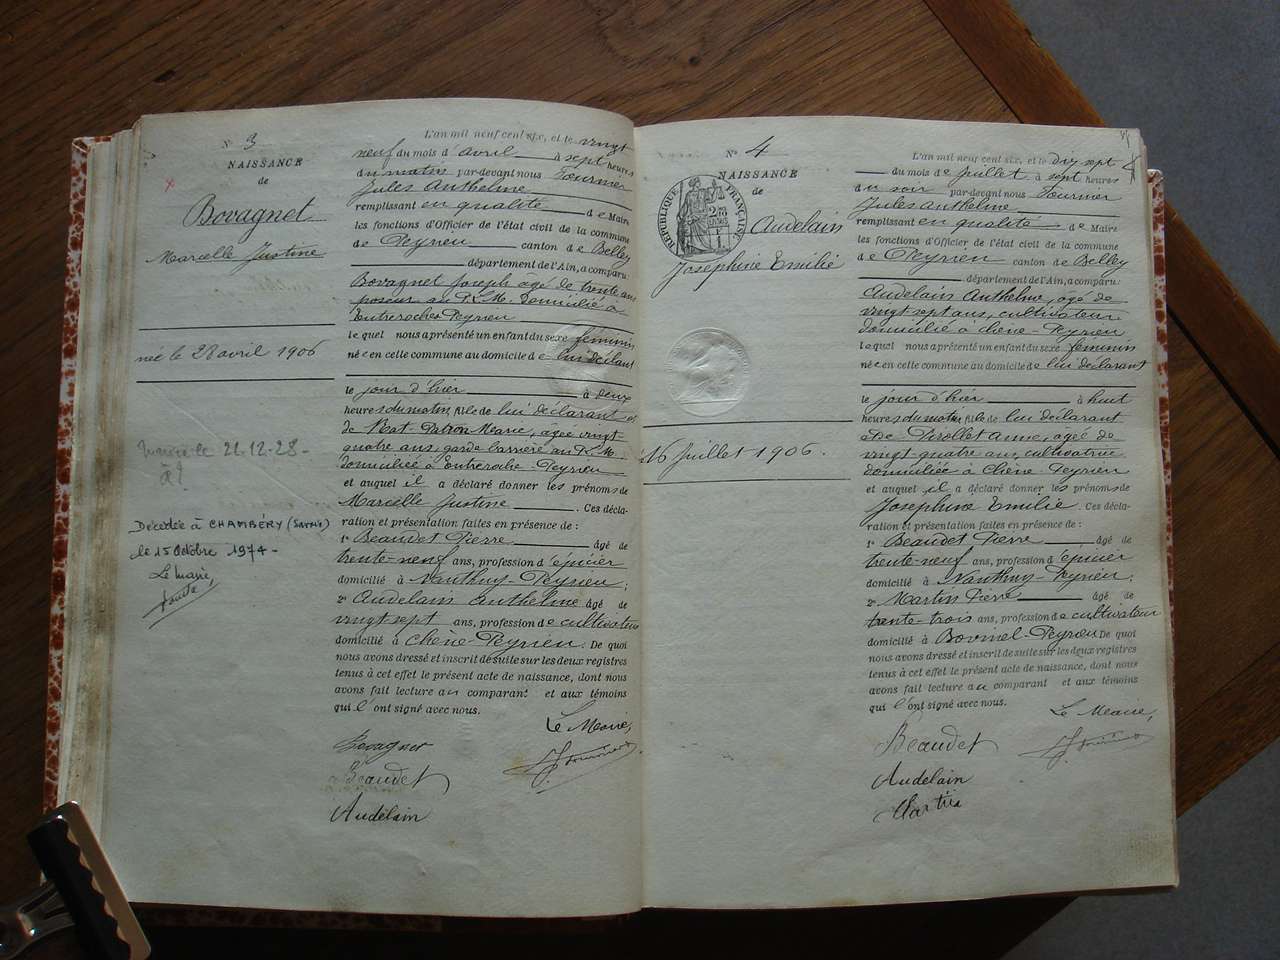 N° 3
NAISSANCE
de
Bovagnet
Marcelle Justine
née le 28 avril 1906
le 21-12-28-
à
Décédée à CHAMBÉRY (Savoie)
le 15 Octobre 1974-
Le Maire,
L'an mil neuf cent six, et le vingt
neuf du mois d'avril à sept heures
du matin par-devant nous Fournier
Jules Anthelme
remplissant en qualité de Maire
les fonctions d'Officier de l'état civil de la commune
de Peyrieu canton de Belley
département de l'Ain, a comparu:
Bovagnet Joseph agé de trente ans
poseur au P.L.M. Domicilié à
Entreroches Peyrieu
lequel nous a présenté un enfant du sexe féminin
née en cette commune au domicile de lui déclarant
le jour d'hier à deux
heures du matin, fils de lui déclarant et
de Marie, âgée vingt-
quatre ans, garde barrière au P.L.M.
domiciliée à Entreroche-Peyrieu
et auquel il a déclaré donner les prénoms de
Marcelle Justine. Ces décla-
ration et présentation faites en présence de:
1° Beaudet Pierre âgé de
trente-neuf ans, profession d'épicier
domicilié à Nanthuy-Peyrieu;
2° Audelain Anthelme âgé de
vingt sept ans, profession de cultivateur
domicilié à Chêne-Peyrieu. De quoi
nous avons dressé et inscrit de suite sur les deux registres
tenus à cet effet le présent acte de naissance, dont nous
avons fait lecture au comparant et aux témoins
qui l'ont signé avec nous.
Le Maire,
Bovagnet
J. Fournier
Beaudet
Audelain
N° 4
NAISSANCE
de
RÉPUBLIQUE FRANÇAISE
Audelain
Joséphine Emilie
16 Juillet 1906.
L'an mil neuf cent six, et le dix sept
du mois de juillet à sept heures
du soir par-devant nous Fournier
Jules Anthelme
remplissant en qualité de Maire
les fonctions d'Officier de l'état civil de la commune
de Peyrieu canton de Belley
département de l'Ain, a comparu:
Audelain Anthelme, âgé de
vingt sept ans, cultivateur
domicilié à Chêne-Peyrieu
lequel nous a présenté un enfant du sexe féminin
née en cette commune au domicile de lui déclarant
le jour d'hier à huit
heures du matin fils de lui déclarant
et de Pirollet Anne, âgée de
vingt quatre ans, cultivatrice
domiciliée à Chêne-Peyrieu
et auquel il a déclaré donner les prénoms de
Joséphine Emilie. Ces décla-
ration et présentation faites en présence de:
1° Beaudet Pierre âgé de
trente-neuf ans, profession d'épicier
domicilié à Nanthuy-Peyrieu;
2° Martin Pierre âgé de
trente-trois ans, profession de cultivateur
domicilié à Bovinel-Peyrieu De quoi
nous avons dressé et inscrit de suite sur les deux registres
tenus à cet effet le présent acte de naissance, dont nous
avons fait lecture au comparant et aux témoins
qui l'ont signé avec nous.
Le Maire,
Beaudet
J. Fournier
Audelain
Martin